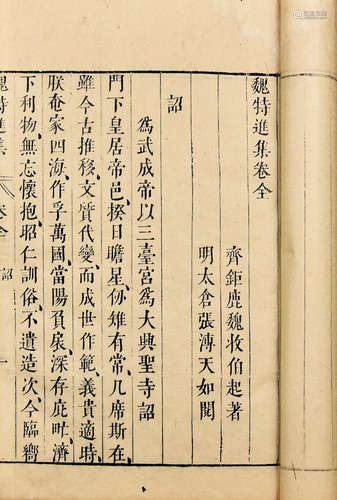 魏特進集卷全
齊鉅鹿魏收伯起著
明太倉張溥天如閱
詔
爲武成帝以三臺宮爲大興聖寺詔
門下皇居帝邑揆日瞻星仞雉有常几席斯在
雖今古推移文質代變而成世作範義貴適時
朕奄家四海作孚萬國當陽負扆深存庇濟
下利物無忘懷抱昭仁訓俗不遺造次今臨嚮
魏特進集 卷全 詔